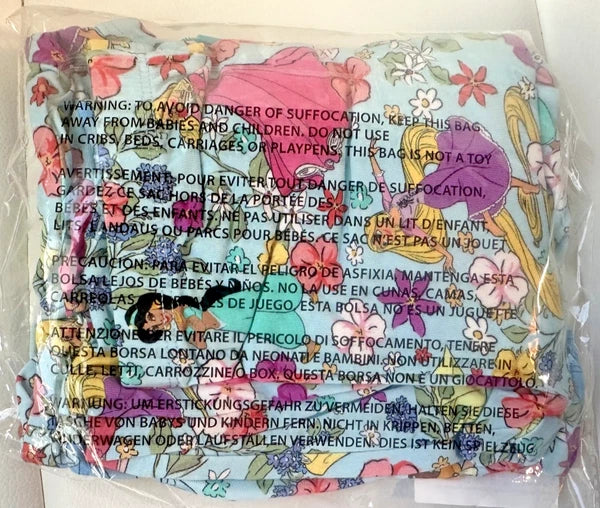 WARNING: TO AVOID DANGER OF SUFFOCATION, KEEP THIS BAG
AWAY FROM BABIES AND CHILDREN. DO NOT USE
IN CRIBS, BEDS, CARRIAGES, OR PLAYPENS. THIS BAG IS NOT A TOY
AVERTISSEMENT: POUR EVITER TOUT DANGER DE SUFFOCATION,
GARDEZ CE SAC HORS DE LA PORTÉE DES
BÉBÉS ET DES ENFANTS. NE PAS UTILISER DANS UN LIT D'ENFANT,
LITS, LANDAUS OU PARCS POUR BÉBÉS. CE SAC N'EST PAS UN JOUET
PRECAUCION: PARA EVITAR EL PELIGRO DE ASFIXIA, MANTENGA ESTA
BOLSA LEJOS DE BEBÉS Y NIÑOS. NO LA USE EN CUNAS, CAMAS,
CARREOLAS DE JUEGO. ESTA BOLSA NO ES UN JUGUETE
ATTENZIONE: PER EVITARE IL PERICOLO DI SOFFOCAMENTO, TENERE
QUESTA BORSA LONTANO DA NEONATI E BAMBINI. NON UTILIZZARE IN
CULLE, LETTI, CARROZZINE O BOX. QUESTA BORSA NON È UN GIOCATTOLO.
WARNUNG: UM ERSTICKUNGSGEFAHR ZU VERMEIDEN, HALTEN SIE DIESE
TASCHE VON BABYS UND KINDERN FERN. NICHT IN KRIPPEN, BETTEN,
KINDERWAGEN ODER LAUFSTÄLLEN VERWENDEN. DIES IST KEIN SPIELZEUG.